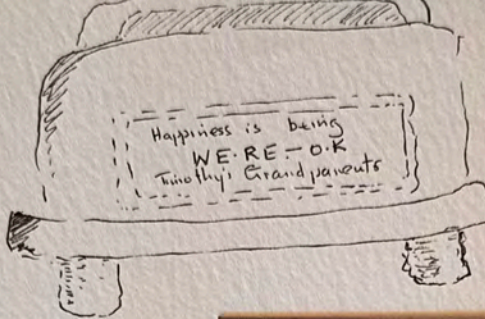 Happiness is being
WE·RE·-O·K
Timothy's Grandparents